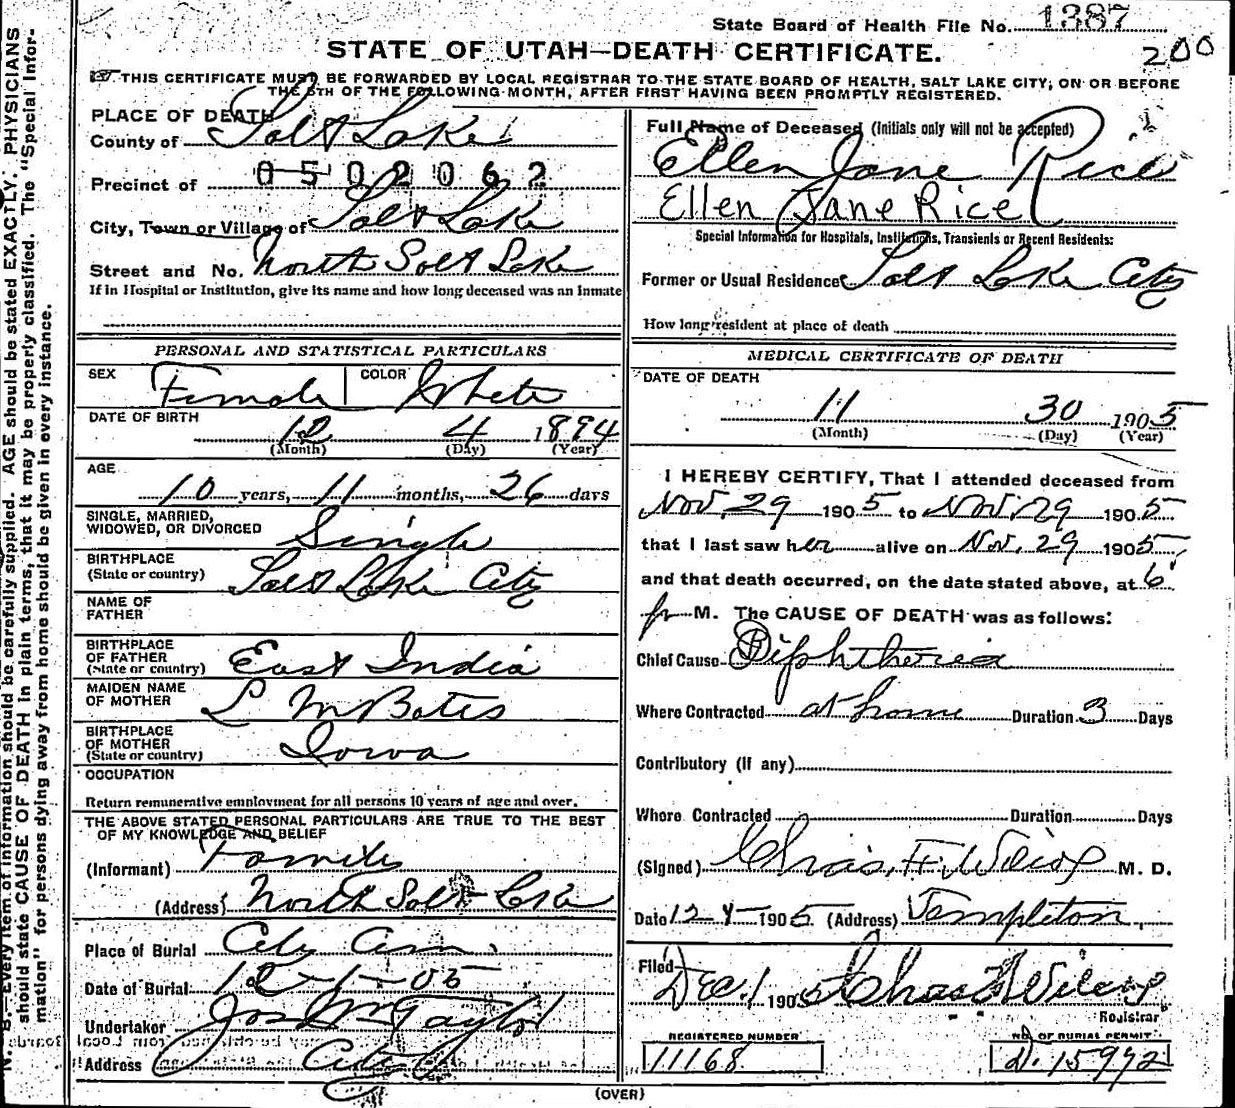 State Board of Health File No. 1387
200
STATE OF UTAH—DEATH CERTIFICATE.
THIS CERTIFICATE MUST BE FORWARDED BY LOCAL REGISTRAR TO THE STATE BOARD OF HEALTH, SALT LAKE CITY, ON OR BEFORE
THE 5TH OF THE FOLLOWING MONTH, AFTER FIRST HAVING BEEN PROMPTLY REGISTERED.
PLACE OF DEATH
County of Salt Lake
Precinct of 0502062
City, Town or Village of Salt Lake
Street and No. North Salt Lake
If in Hospital or Institution, give its name and how long deceased was an inmate
PERSONAL AND STATISTICAL PARTICULARS
SEX Female COLOR White
DATE OF BIRTH 12 4 1894
(Month) (Day) (Year)
AGE 10 years, 11 months, 26 days
SINGLE, MARRIED,
WIDOWED, OR DIVORCED Single
BIRTHPLACE
(State or country) Salt Lake City
NAME OF
FATHER
BIRTHPLACE
OF FATHER
(State or country) East India
MAIDEN NAME
OF MOTHER L M Bates
BIRTHPLACE
OF MOTHER
(State or country) Iowa
OCCUPATION
Return remunerative employment for all persons 10 years of age and over.
THE ABOVE STATED PERSONAL PARTICULARS ARE TRUE TO THE BEST
OF MY KNOWLEDGE AND BELIEF
(Informant) Family
(Address) North Salt Lake
Place of Burial City Cem.
Date of Burial 12-1-05
Undertaker Jos Wm Taylor
Address City
Full Name of Deceased (Initials only will not be accepted)
Ellen Jane Rice
Ellen Jane Rice
Special Information for Hospitals, Institutions, Transients or Recent Residents:
Former or Usual Residence Salt Lake City
How long resident at place of death
MEDICAL CERTIFICATE OF DEATH
DATE OF DEATH
11 30 1905
(Month) (Day) (Year)
I HEREBY CERTIFY, That I attended deceased from
Nov. 29 1905 to Nov. 29 1905
that I last saw her alive on Nov. 29 1905,
and that death occurred, on the date stated above, at 6
P M. The CAUSE OF DEATH was as follows:
Chief Cause Diphtheria
Where Contracted at home Duration 3 Days
Contributory (if any)
Where Contracted Duration Days
(Signed) Chas. F. Wilcox M. D.
Date 12 1905 (Address) Templeton
Filed Dec. 1 1905 Chas F Wilcox
Registrar
REGISTERED NUMBER
11168
NO. OF BURIAL PERMIT
D. 15992
(OVER)
N. B.—Every item of information should be carefully supplied. AGE should be stated EXACTLY. PHYSICIANS
should state CAUSE OF DEATH in plain terms, that it may be properly classified. The "Special Infor-
mation" for persons dying away from home should be given in every instance.